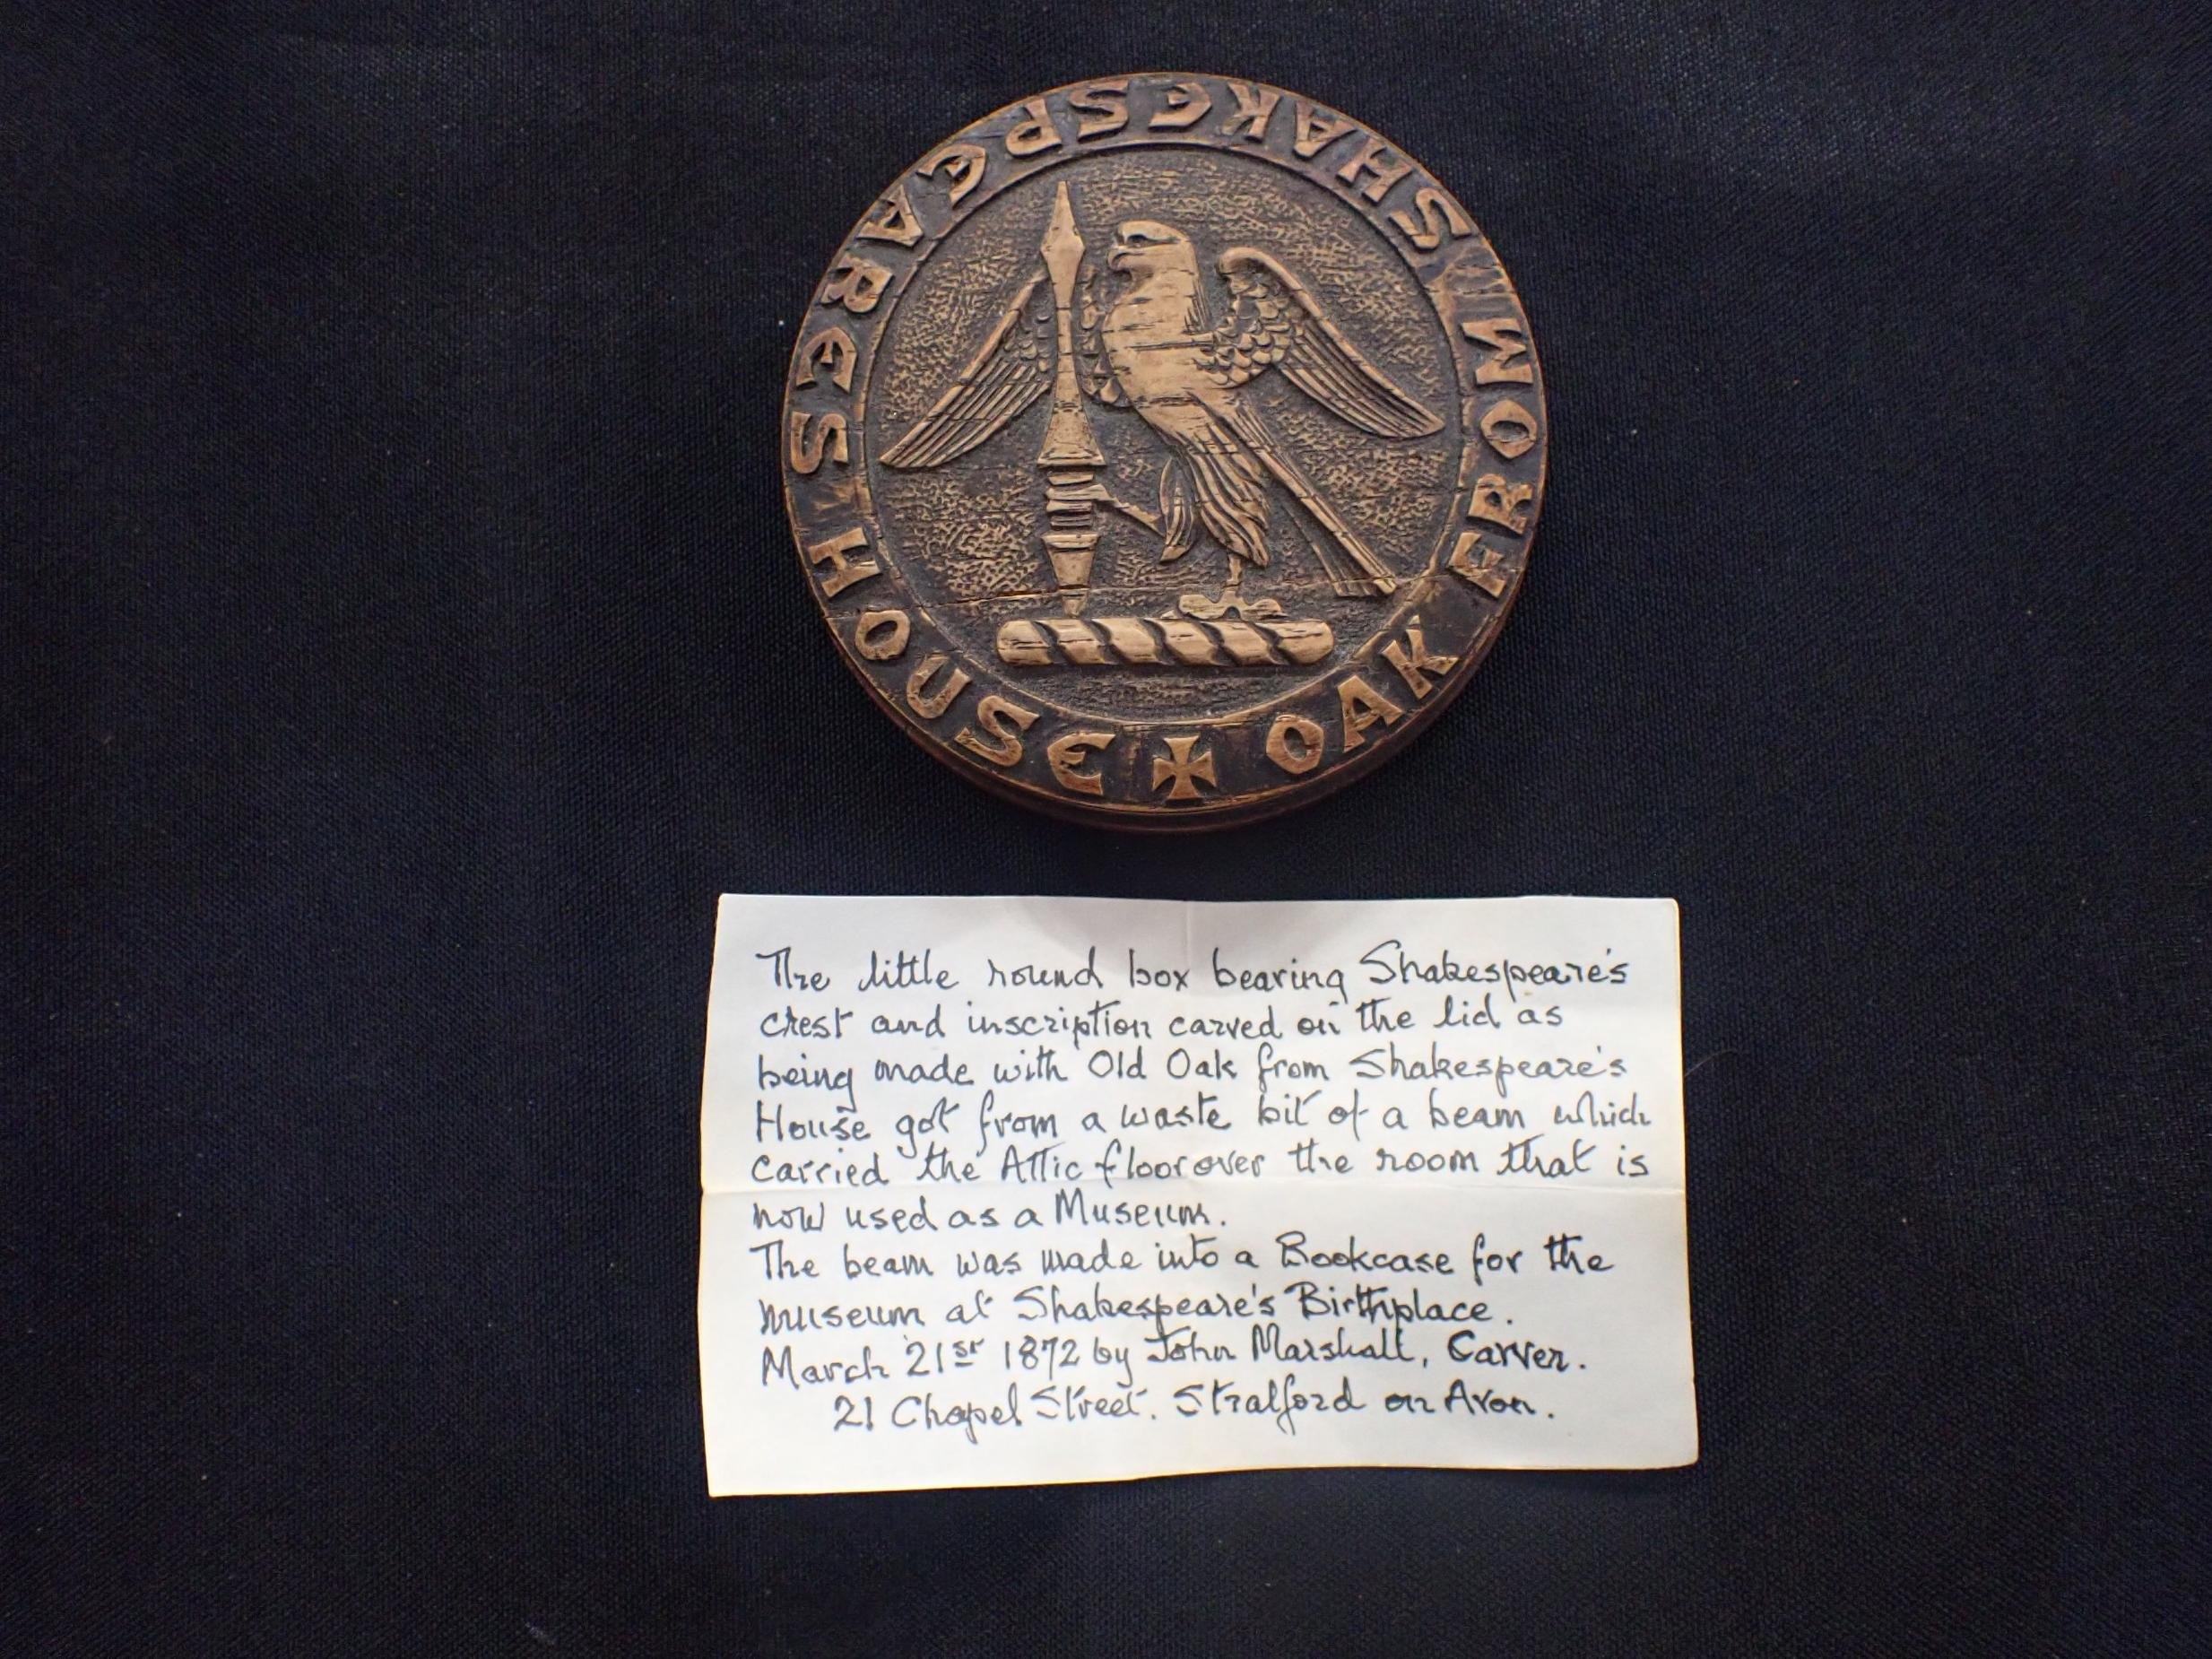 OAK FROM SHAKESPEARES HOUSE
The little round box bearing Shakespeare's
crest and inscription carved on the lid as
being made with Old Oak from Shakespeare's
House got from a waste bit of a beam which
carried the Attic floor over the room that is
now used as a Museum.
The beam was made into a Bookcase for the
museum at Shakespeare's Birthplace.
March 21st 1872 by John Marshall, Carver.
21 Chapel Street. Stratford on Avon.